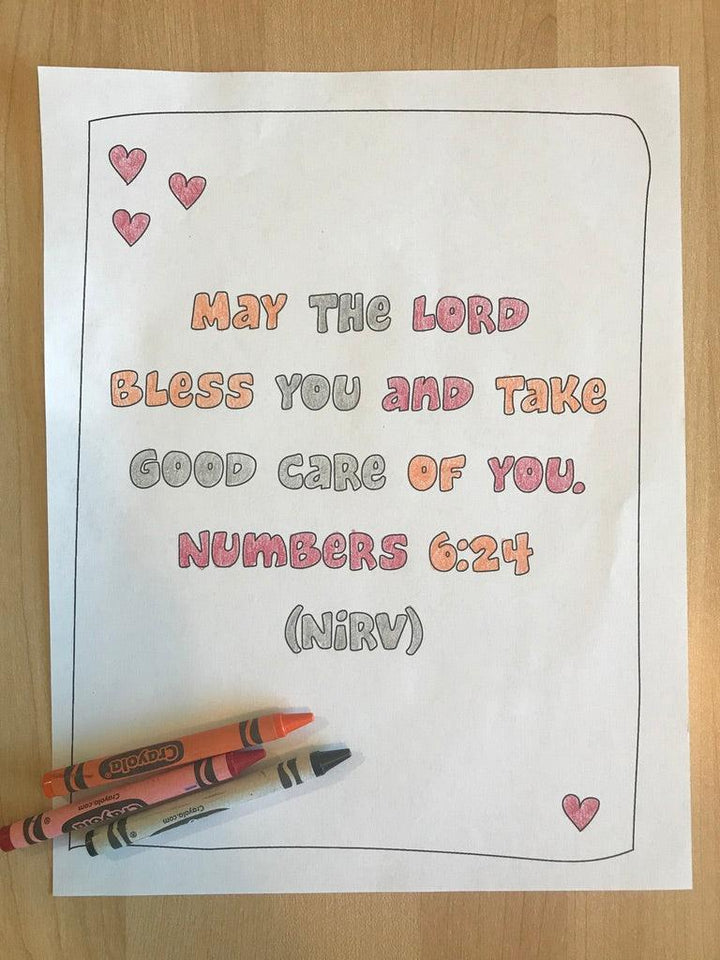 May THe LORD
BLess YOU anD Take
GOOD CaRe OF YOU.
NUmBeRS 6:24
(NiRV)
Crayola
Crayola.com
Crayola
Crayola.com